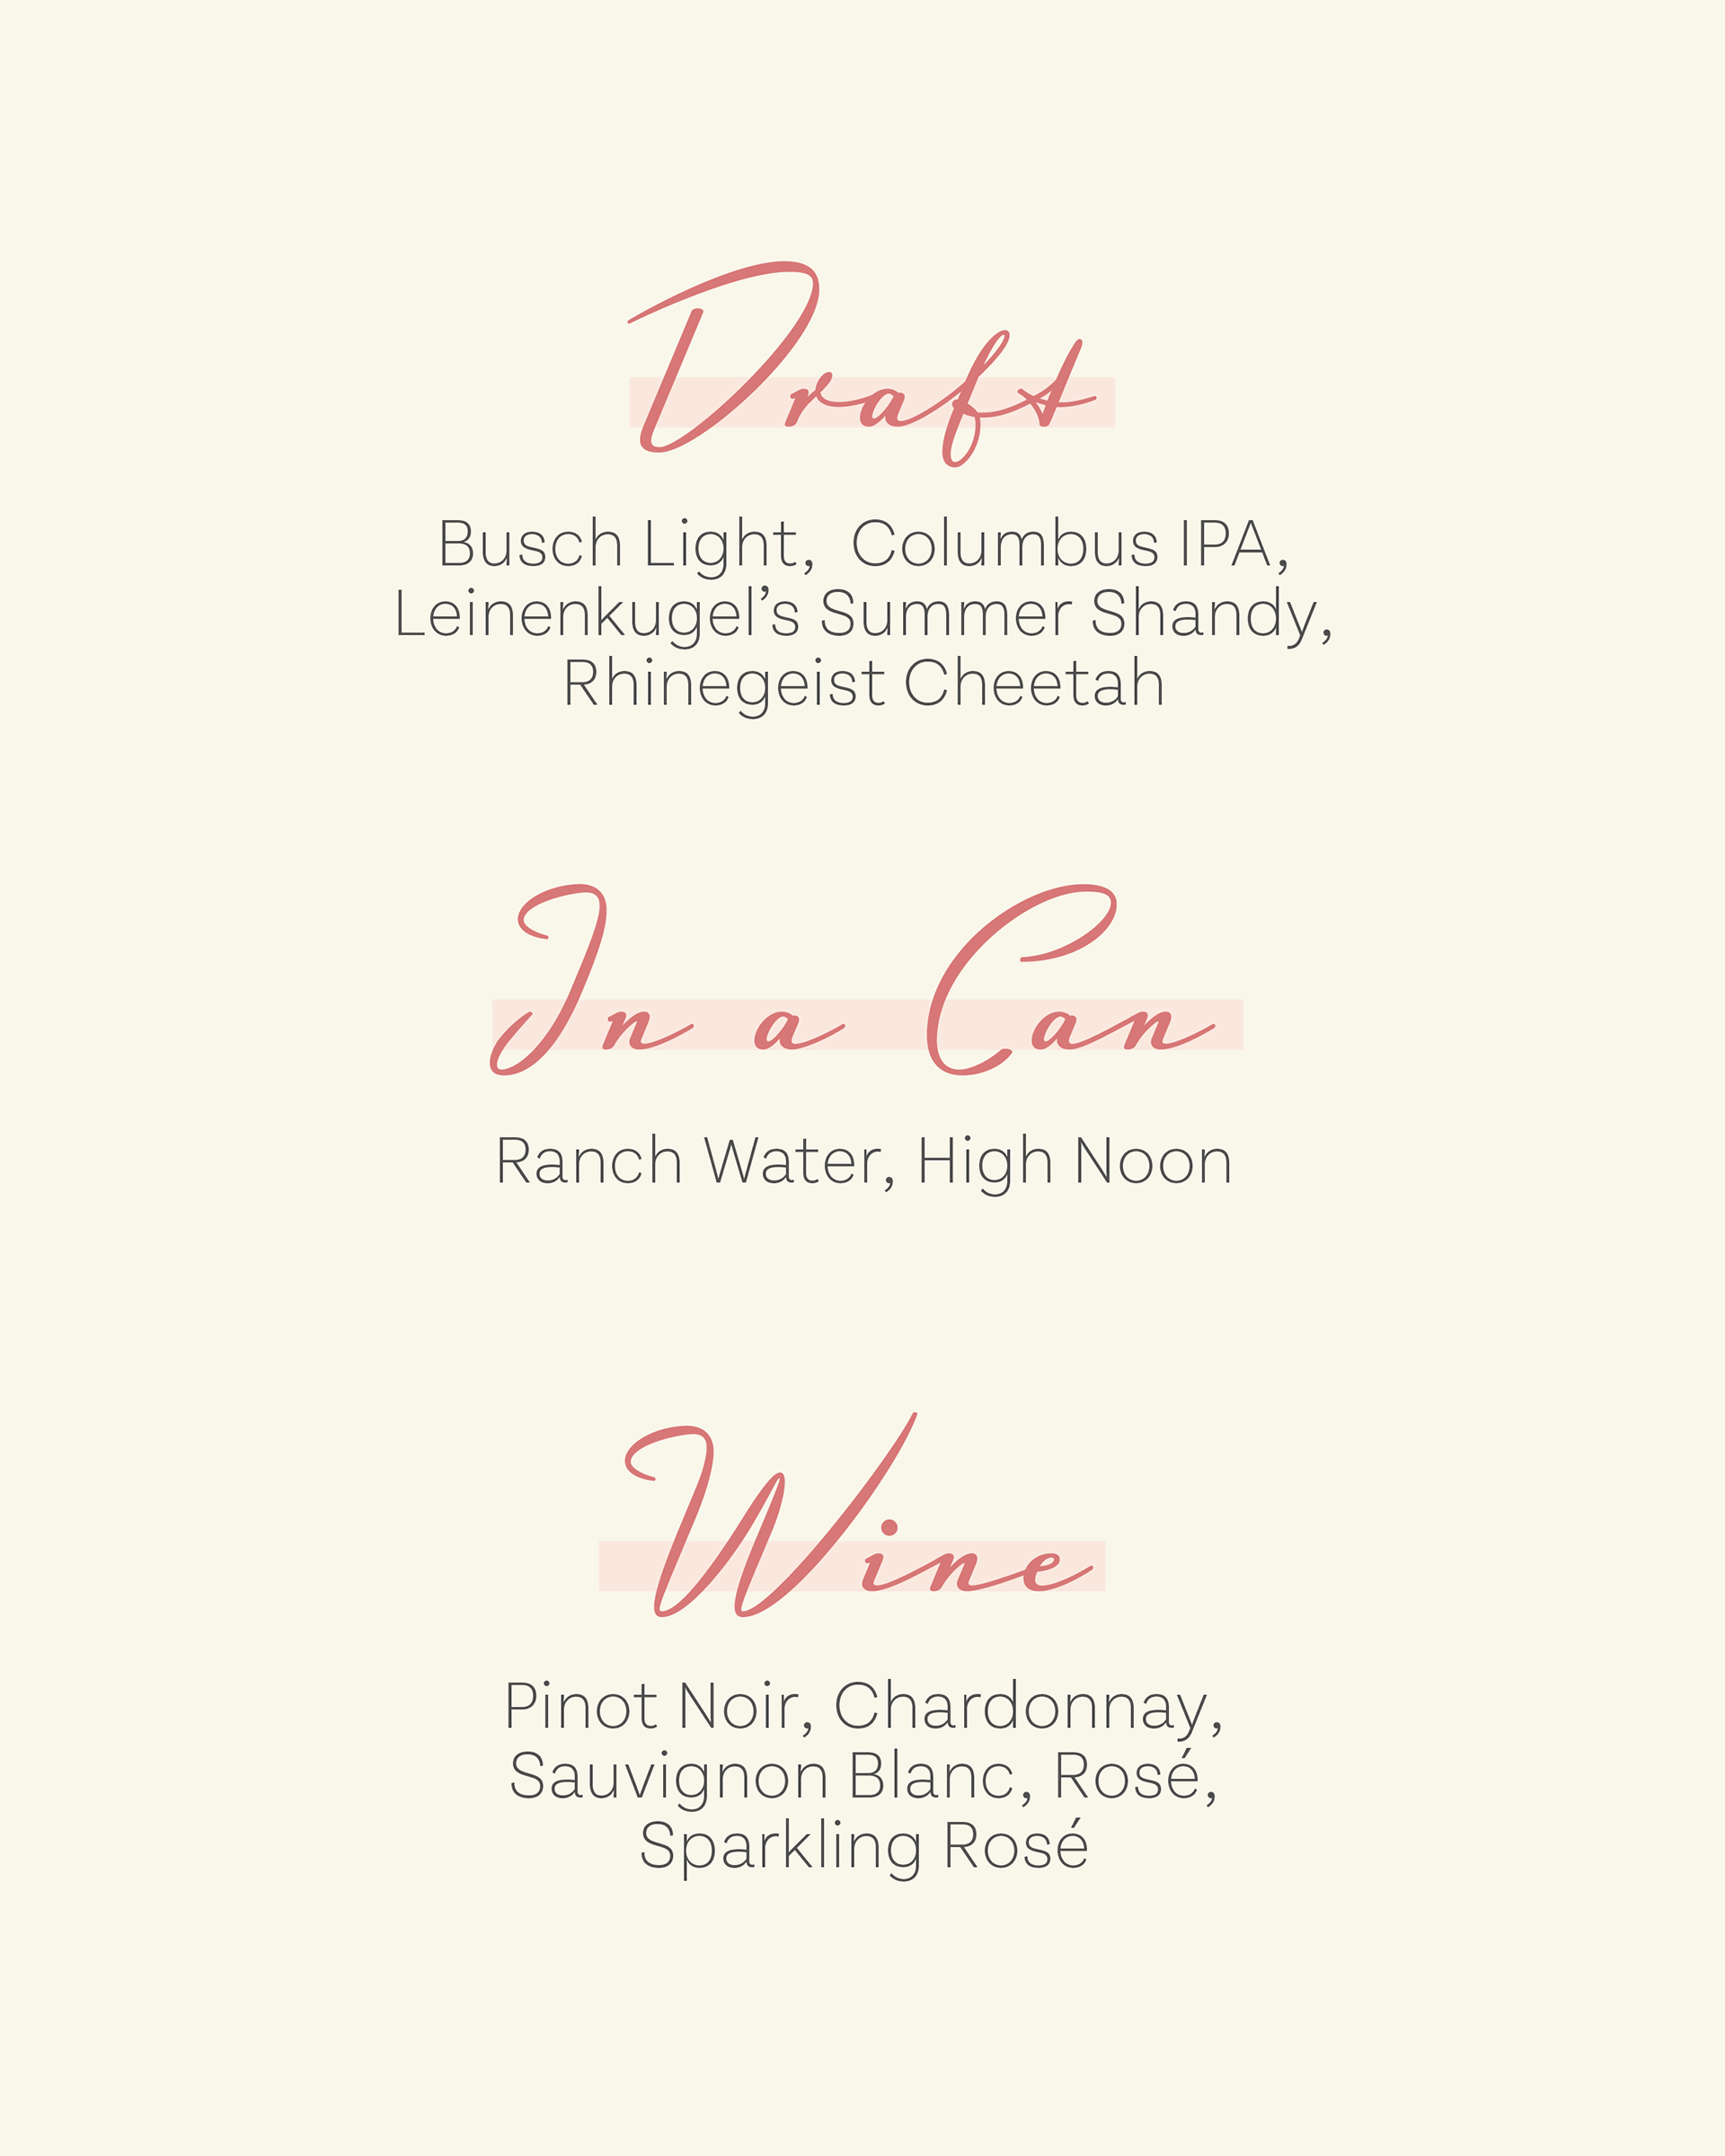 Draft
Busch Light,  Columbus IPA,
Leinenkugel’s Summer Shandy,
Rhinegeist Cheetah
In a Can
Ranch Water, High Noon
Wine
Pinot Noir, Chardonnay,
Sauvignon Blanc, Rosé,
Sparkling Rosé